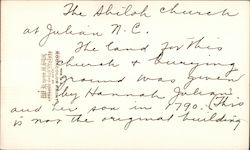 The Shiloh Church
at Julian N.C.
The land for this
church & burying
ground was given
by Hannah Julian
and her son in 1790. (This
is not the original building